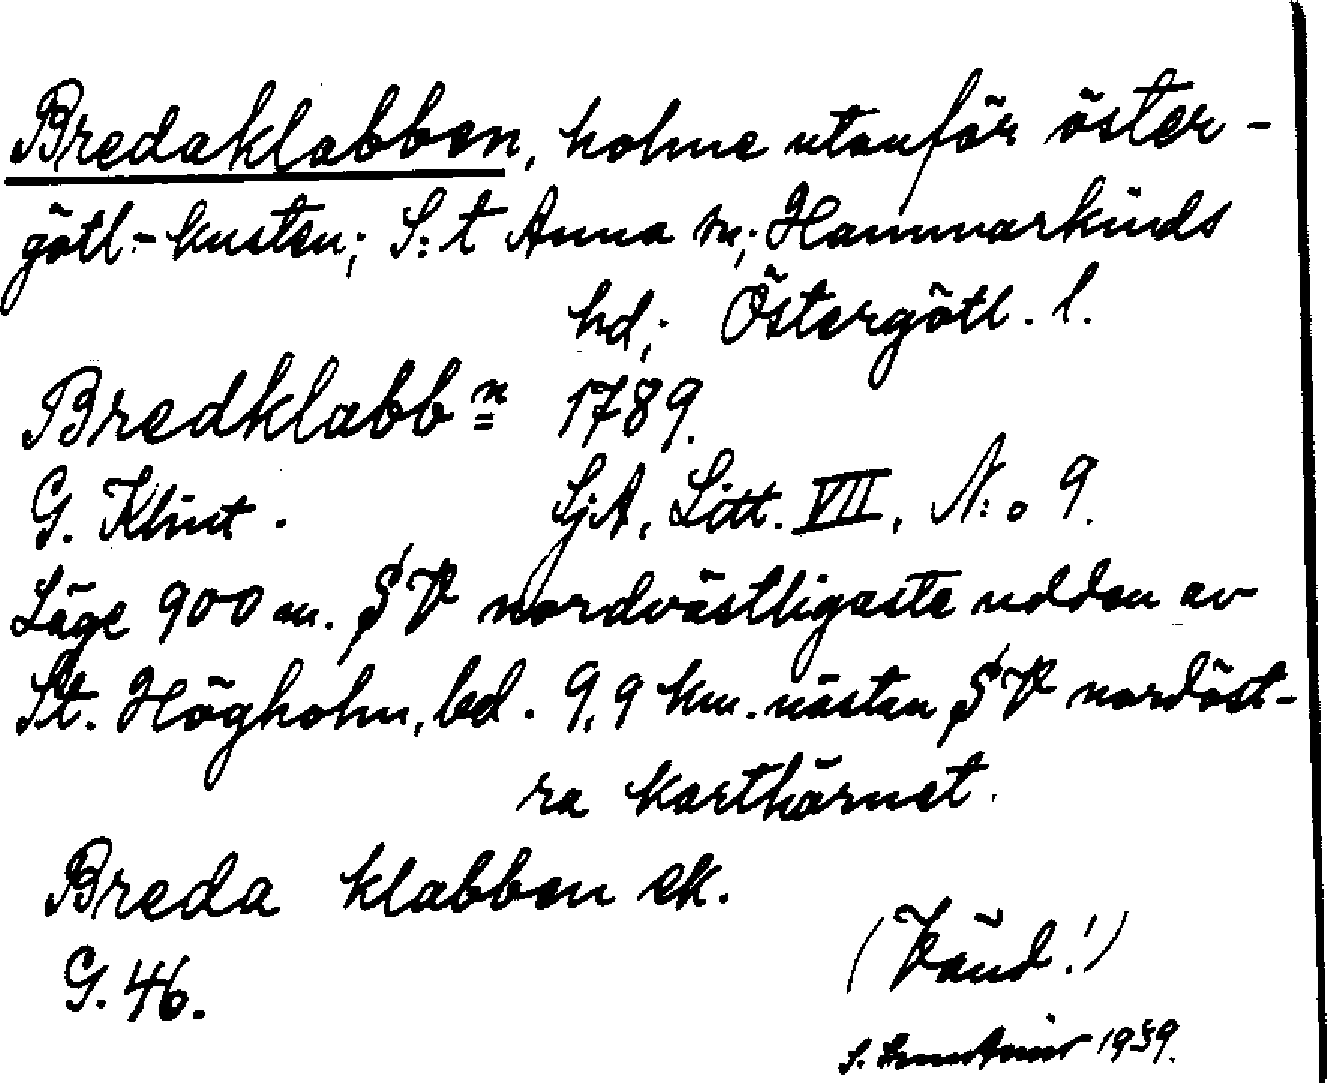 Bredaklabben, holme utanför öster-
götl.-kusten; S:t Anna sn; Hammarkinds
hd; Östergötl. l.
Bredklabbn 1789.
G. Klint. SjA, Litt. VII, N:o 9.
Läge 900 m. SV nordvästligaste udden av
St. Högholm, bd. 9,9 km. nästan SV nordöst-
ra karthörnet.
Breda klabben ek.
G. 46.
(Vänd!)
S. 1939.